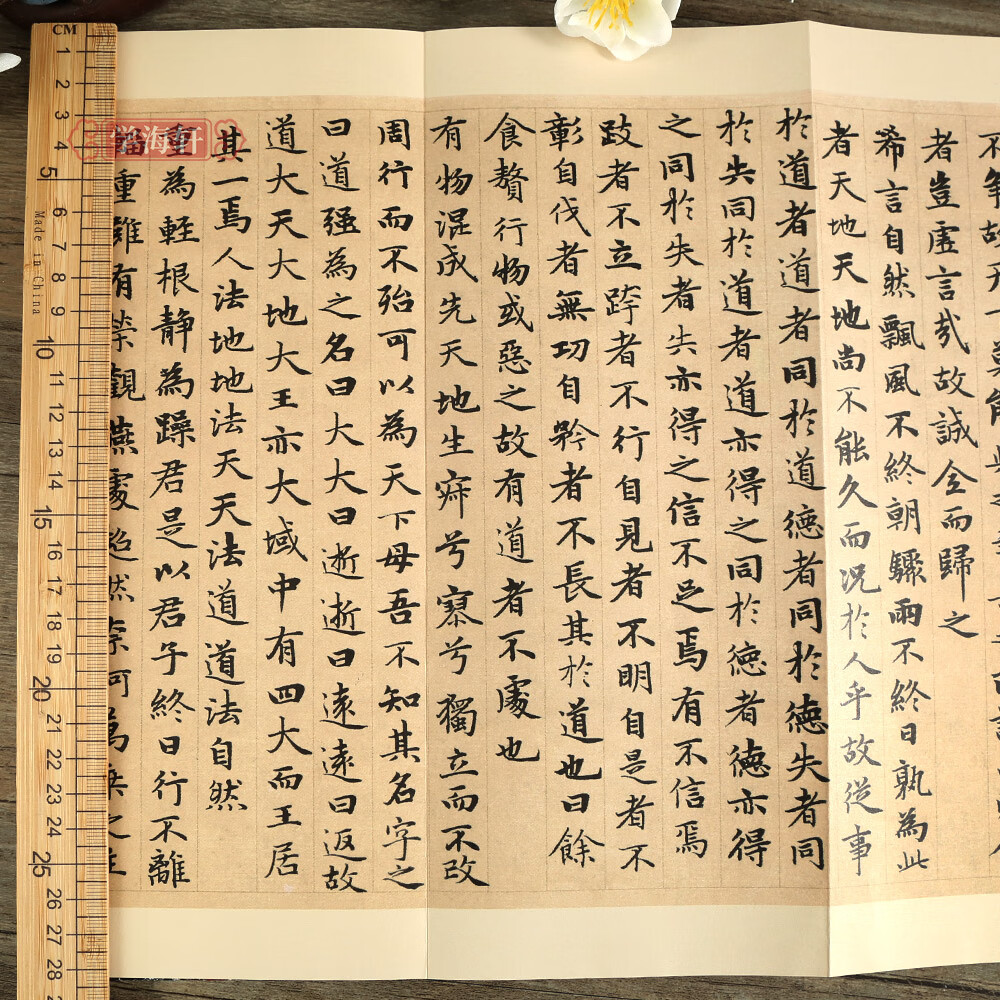 不爭故天下莫能
者豈虛言㢤故誠全而歸之
希言自然飄風不終朝驟雨不終日孰為此
者天地天地尚不能久而況於人乎故從事
於道者道者同於道德者同於德失者同
於失同於道者道亦得之同於德者德亦得
之同於失者失亦得之信不足焉有不信焉
跂者不立跨者不行自見者不明自是者不
彰自伐者無功自矜者不長其於道也曰餘
食贅行物或惡之故有道者不處也
有物混成先天地生寂兮寥兮獨立而不改
周行而不殆可以為天下母吾不知其名字之
曰道强為之名曰大大曰逝逝曰遠遠曰返故
道大天大地大王亦大域中有四大而王居
其一焉人法地地法天天法道道法自然
重為輕根靜為躁君是以君子終日行不離
輜重雖有榮觀燕處超然柰何萬乘之主
海軒
CM
1 2 3 4 5 6 7 8 9 10 11 12 13 14 15 16 17 18 19 20 21 22 23 24 25 26 27 28
Made in China